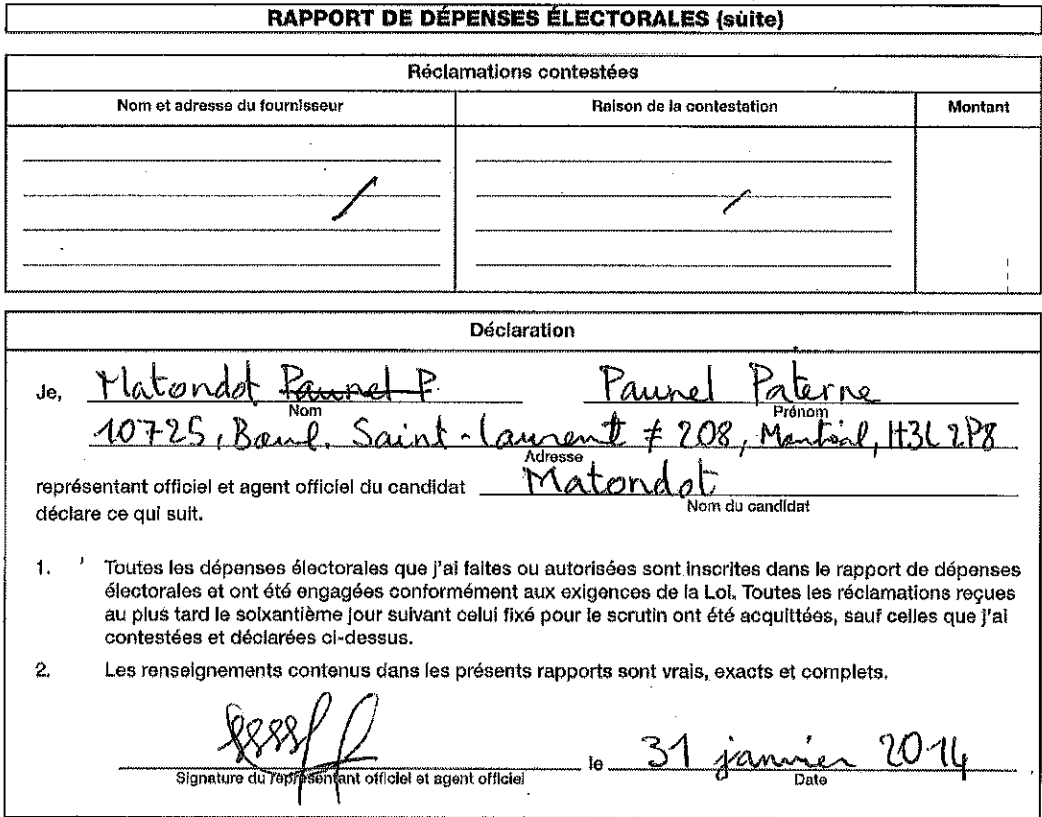 RAPPORT DE DÉPENSES ÉLECTORALES (suite)
Réclamations contestées
Nom et adresse du fournisseur Raison de la contestation Montant
/ /
Déclaration
Je, Matondot Paunel P. Paunel Paterne
Nom Prénom
10725, Boul. Saint-Laurent # 208, Montréal, H3L 2P8
Adresse
représentant officiel et agent officiel du candidat Matondot
Nom du candidat
déclare ce qui suit.
1. Toutes les dépenses électorales que j'ai faites ou autorisées sont inscrites dans le rapport de dépenses
électorales et ont été engagées conformément aux exigences de la Loi. Toutes les réclamations reçues
au plus tard le soixantième jour suivant celui fixé pour le scrutin ont été acquittées, sauf celles que j'ai
contestées et déclarées ci-dessus.
2. Les renseignements contenus dans les présents rapports sont vrais, exacts et complets.
le 31 janvier 2014
Signature du représentant officiel et agent officiel Date